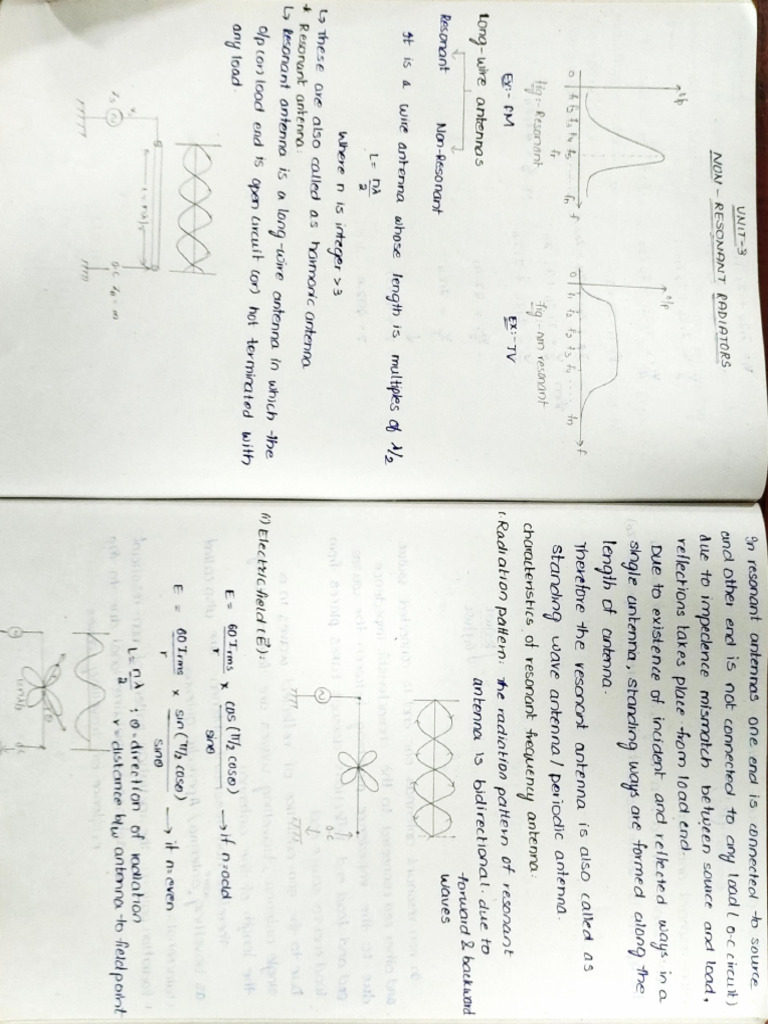 UNIT-3
NON-RESONANT RADIATORS
o/p
o/p
fig:- Resonant
fig:- non resonant
Ex:- FM
Ex:- TV
Long-wire antennas
Resonant Non-Resonant
It is a wire antenna whose length is multiples of λ/2
L = nλ/2
where n is integer >3
↳ These are also called as harmonic antenna
* Resonant antenna:
↳ Resonant antenna is a long-wire antenna in which the
o/p (or) load end is open circuit (or) not terminated with
any load.
In resonant antennas one end is connected to source
and other end is not connected to any load (o.c circuit)
due to impedence mismatch between source and load,
reflections takes place from load end.
Due to existence of incident and reflected ways in a
single antenna, standing ways are formed along the
length of antenna.
Therefore the resonant antenna is also called as
standing wave antenna/periodic antenna.
characteristics of resonant frequency antenna:
1. Radiation pattern: The radiation pattern of resonant
antenna is bidirectional due to
forward & backward
waves
o.c
(i) Electric field (E⃗):
E = 60 Irms/r × cos(π/2 cosθ)/sinθ → if n=odd
E = 60 Irms/r × sin(π/2 cosθ)/sinθ → if n=even
L = nλ/2 ; θ = direction of radiation
r = distance b/w antenna to field point
o.c